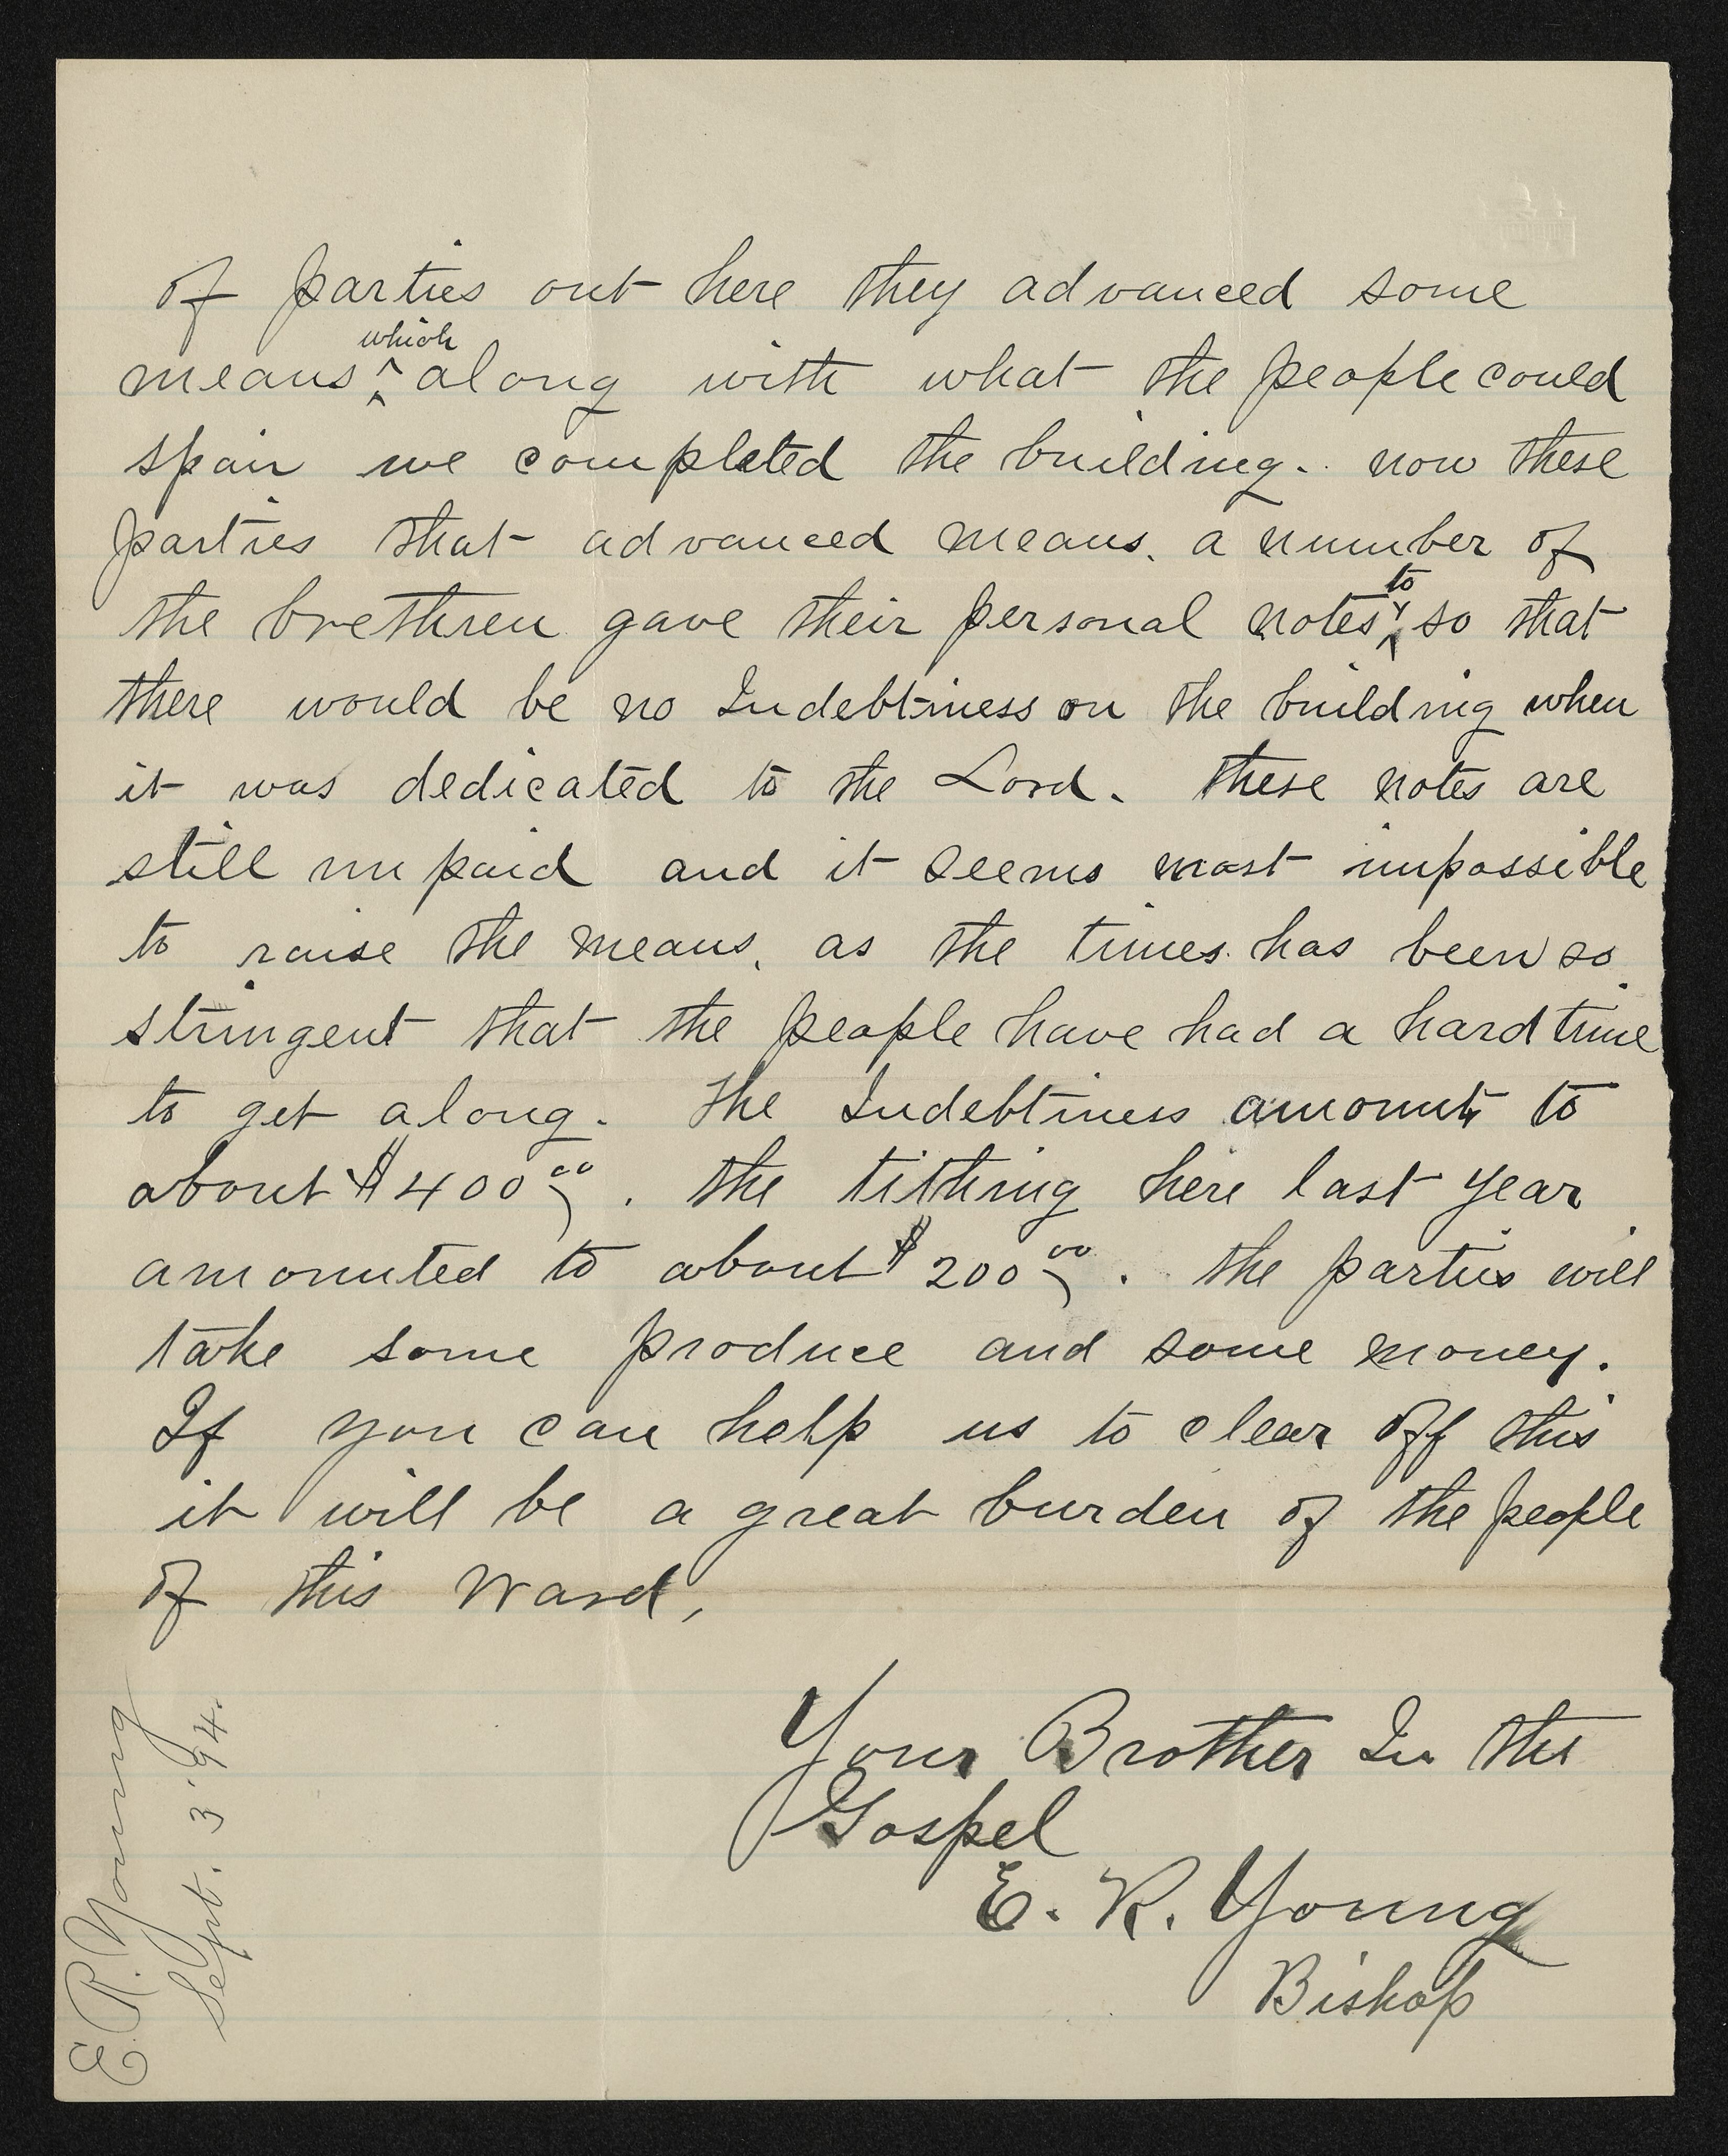 of parties out here they advanced some
which
means ^ along with what the people could
spair we completed the building. now these
parties that advanced means. a number of
to
the brethren gave their personal notes ^ so that
there would be no Indebtiness on the building when
it was dedicated to the Lord. these notes are
still unpaid and it seems most impossible
to raise the means, as the times has been so
stringent that the people have had a hard time
to get along. The Indebtiness amounts to
about $400 00. the tithing here last year
amounted to about $200 00. the parties will
take some produce and some money.
If you can help us to clear off this
it will be a great burden of the people
of this Ward,
Your Brother In the
Gospel
E. R. Young
Bishop
E. R. Young
Sept. 3 '94.